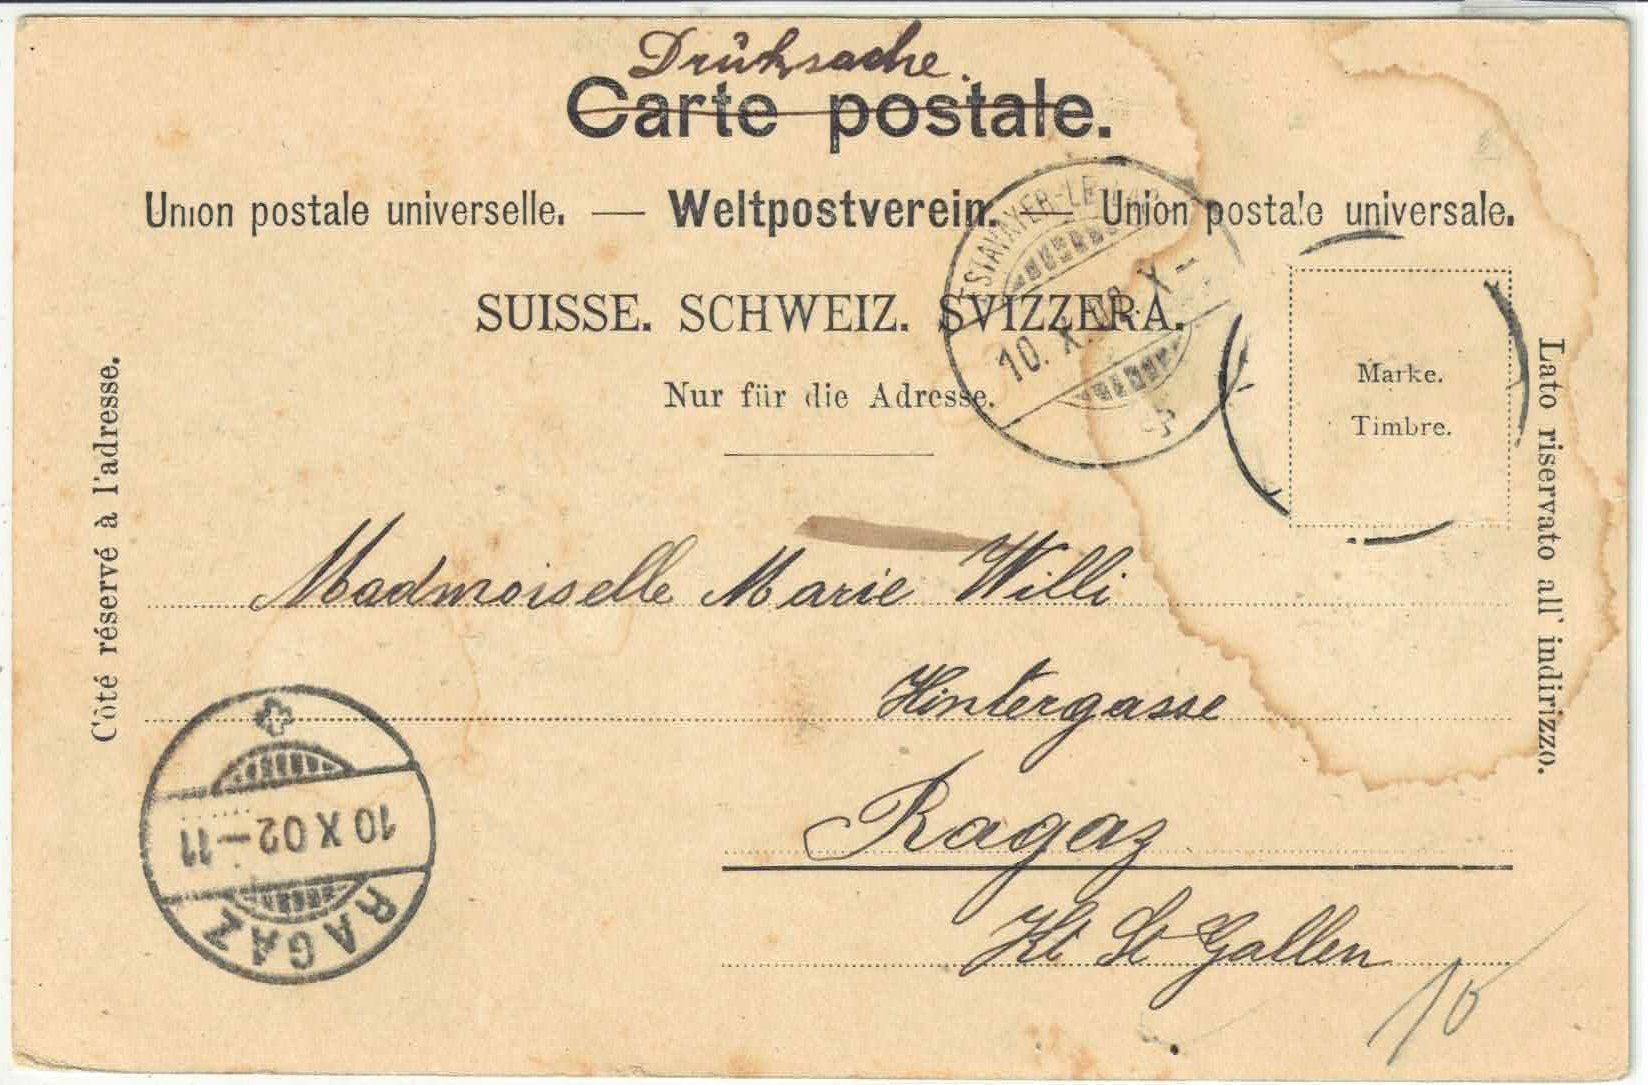 Drŭksache.
Carte postale.
Union postale universelle. — Weltpostverein. — Union postale universale.
SUISSE. SCHWEIZ. SVIZZERA.
Nur für die Adresse.
ESTAVAYER-LE-LAC
10. X. 02. X-
Marke.
Timbre.
Côté réservé à l'adresse.
Lato riservato all' indirizzo.
Madmoiselle Marie Willi
Hintergasse
Ragaz
Kt St Gallen
10 X 02-11
RAGAZ
10